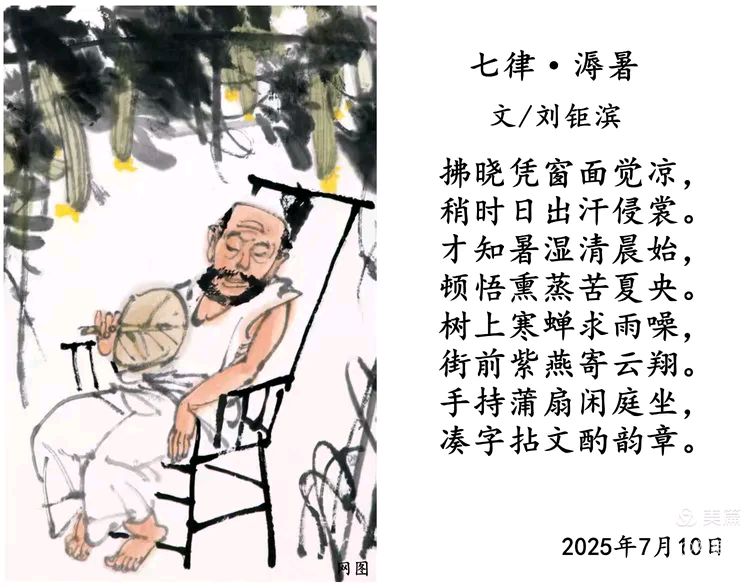 七律·溽暑
文/刘钜滨
拂晓凭窗面觉凉，
稍时日出汗侵裳。
才知暑湿清晨始，
顿悟熏蒸苦夏央。
树上寒蝉求雨噪，
街前紫燕寄云翔。
手持蒲扇闲庭坐，
凑字拈文酌韵章。
2025年7月10日
网图
美篇